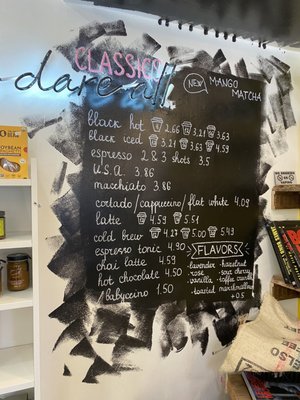 CLASSICS
dare all
NEW
MANGO
MATCHA
black hot 2.66 3.21 3.63
black iced 3.21 3.65 4.59
espresso 2 & 3 shots 3.5
U.S.A 3.86
macchiato 3.86
cortado/cappuccino/flat white 4.09
latte 4.59 5.51
cold brew 4.27 5.00 5.43
espresso tonic 4.90
chai latte 4.59
hot chocolate 4.50
/babyccino 1.50
FLAVORS
-lavender -hazelnut
-rose -sour cherry
-vanilla -toffee
marshmallow
+0.5